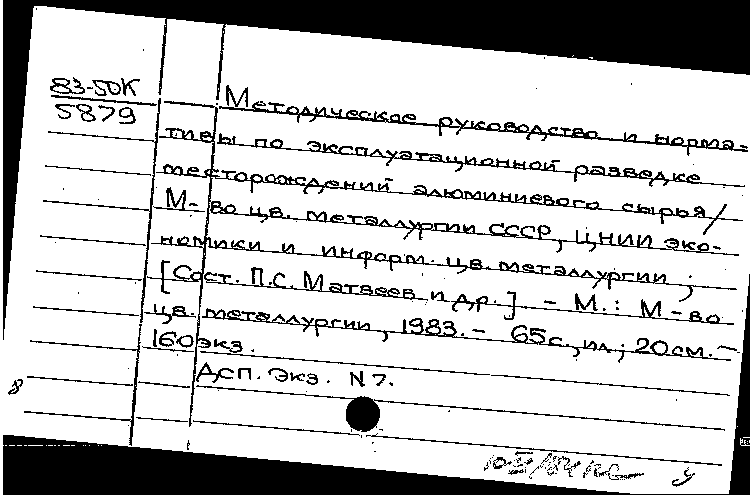 83-5ДК
5879
Методическое руководство и норма-
тивы по эксплуатационной разведке
месторождений алюминиевого сырья/
М-во цв. металлургии СССР, ЦНИИ эко-
номики и информ. цв. металлургии;
[Сост. П.С. Матвеев и др.] - М.: М-во
цв. металлургии, 1983. - 65с., ил; 20см. -
160экз.
Дсп. Экз. N 7.
8